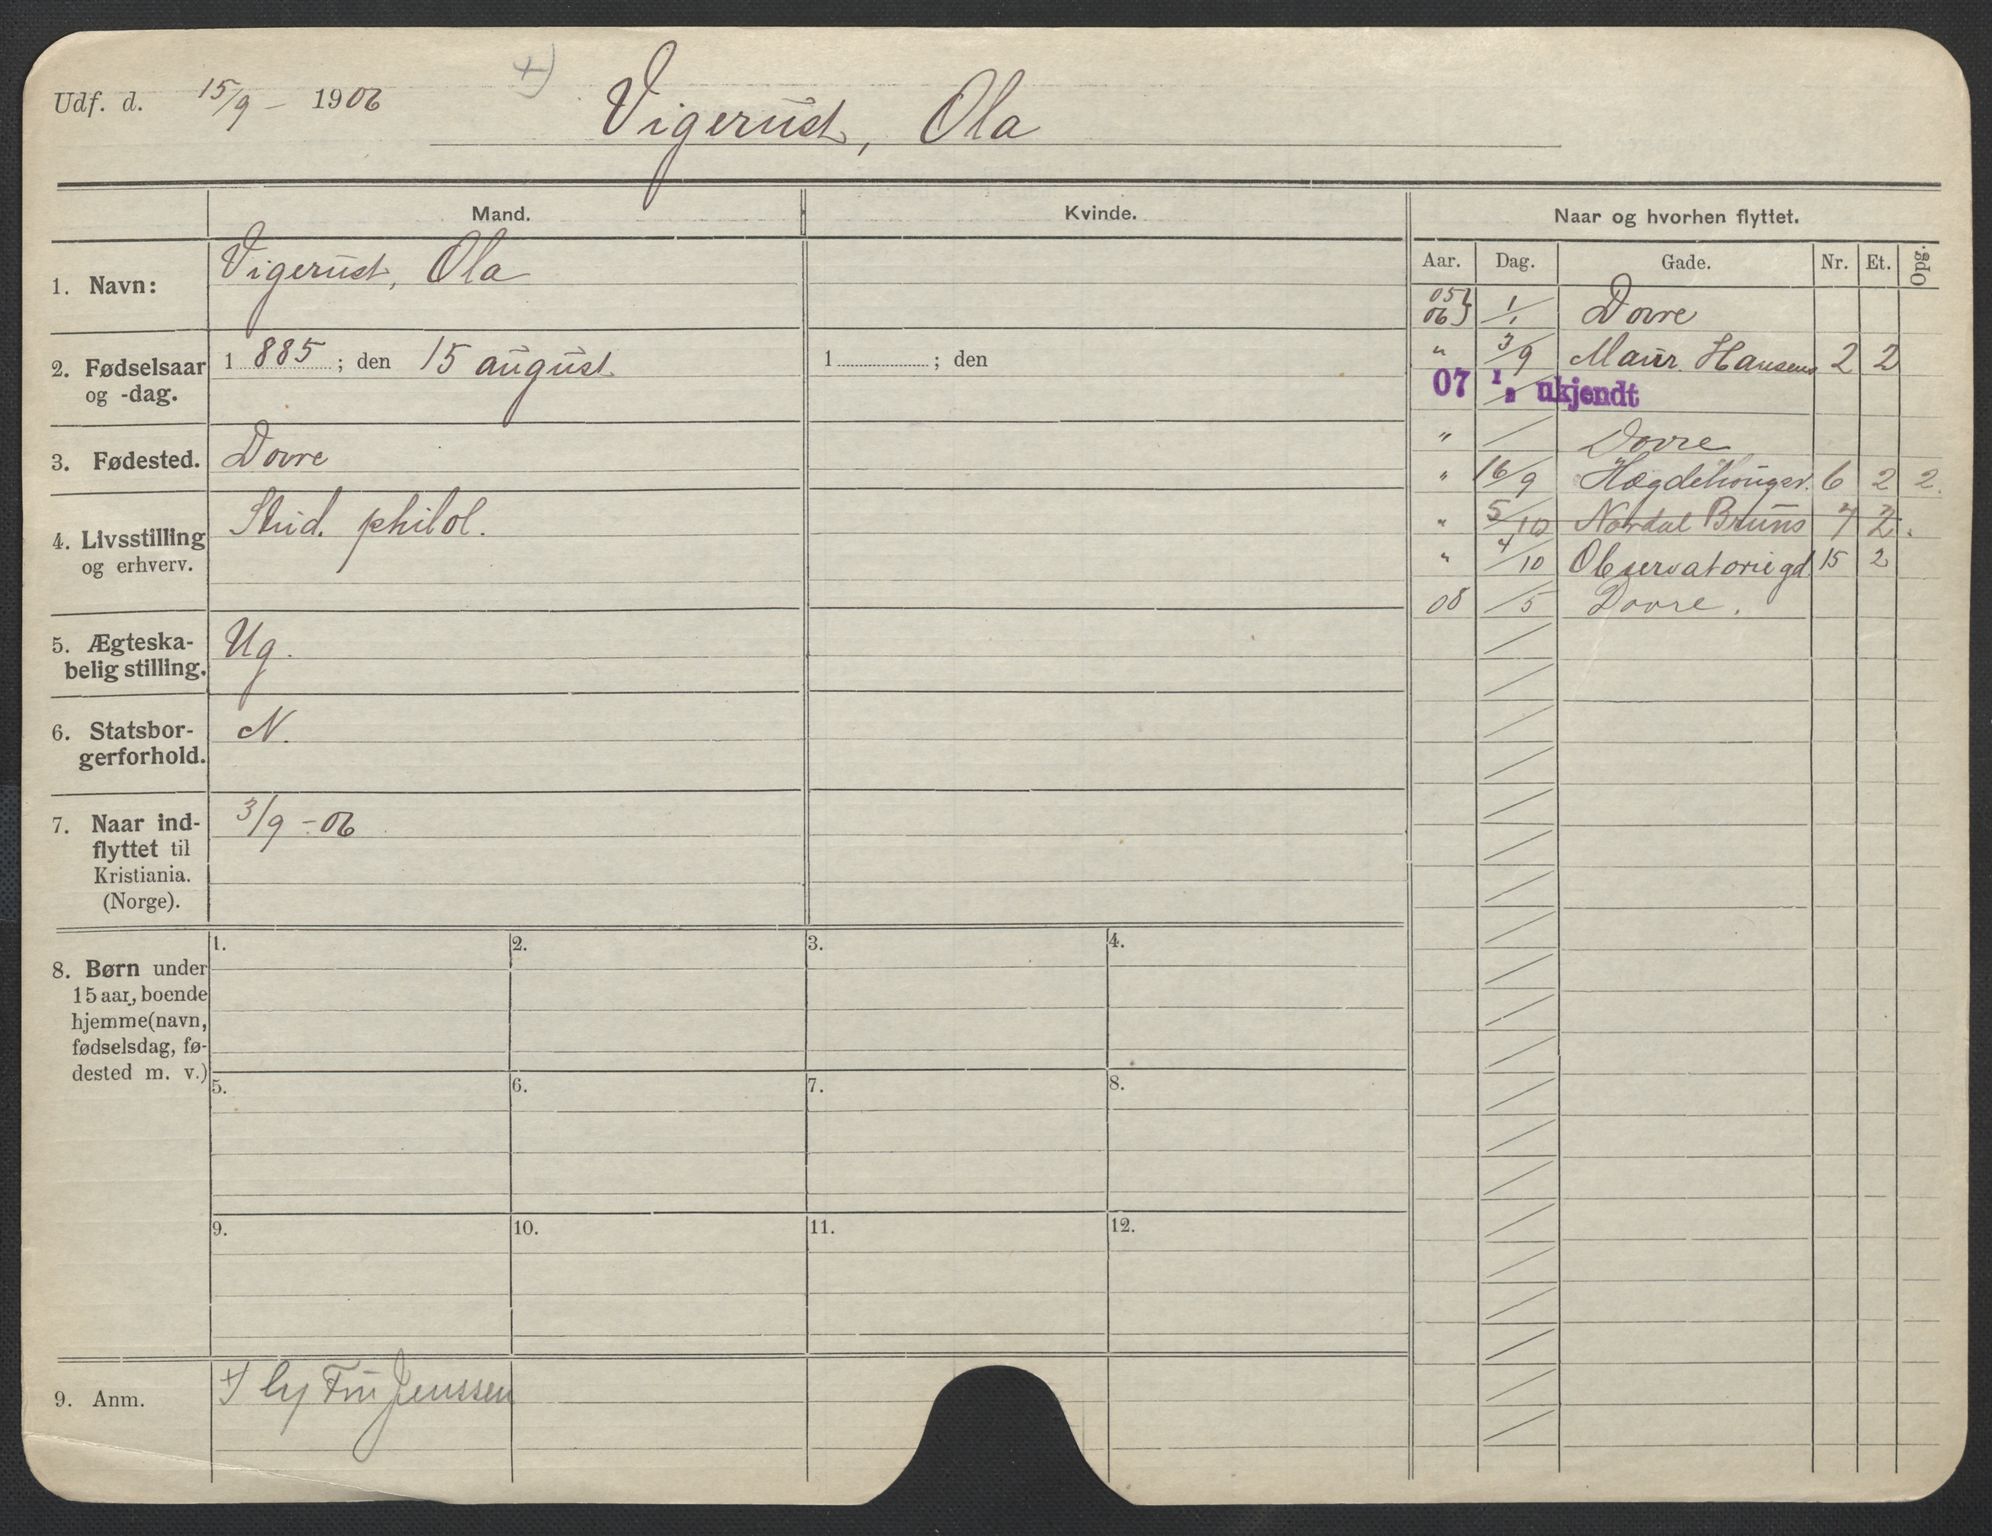 Udf. d. 15/9 - 1906
+)
Vigerust, Ola
Mand.
Kvinde.
Naar og hvorhen flyttet.
Aar. Dag. Gade. Nr. Et. Opg.
1. Navn: Vigerust, Ola
2. Fødselsaar og -dag. 1 885 ; den 15 august
1 ; den
3. Fødested. Dovre
4. Livsstilling og erhverv. Stud. philol.
5. Ægteska-
belig stilling. Ug.
6. Statsbor-
gerforhold. N.
7. Naar ind-
flyttet til
Kristiania.
(Norge). 3/9 - 06
8. Børn under
15 aar, boende
hjemme (navn,
fødselsdag, fø-
dested m. v.)
1. 2. 3. 4.
5. 6. 7. 8.
9. 10. 11. 12.
9. Anm. +) by Fru Jenssen
05}
06} 1/1 Dovre
" 3/9 Maur. Hansens 2 2
07 1/2 ukjendt
" / Dovre
" 16/9 Hægdehougsv. 6 2 2.
" 5/10 Nordal Bruns 7 2.
" 4/10 Observatoriegd. 15 2
08 /5 Dovre.